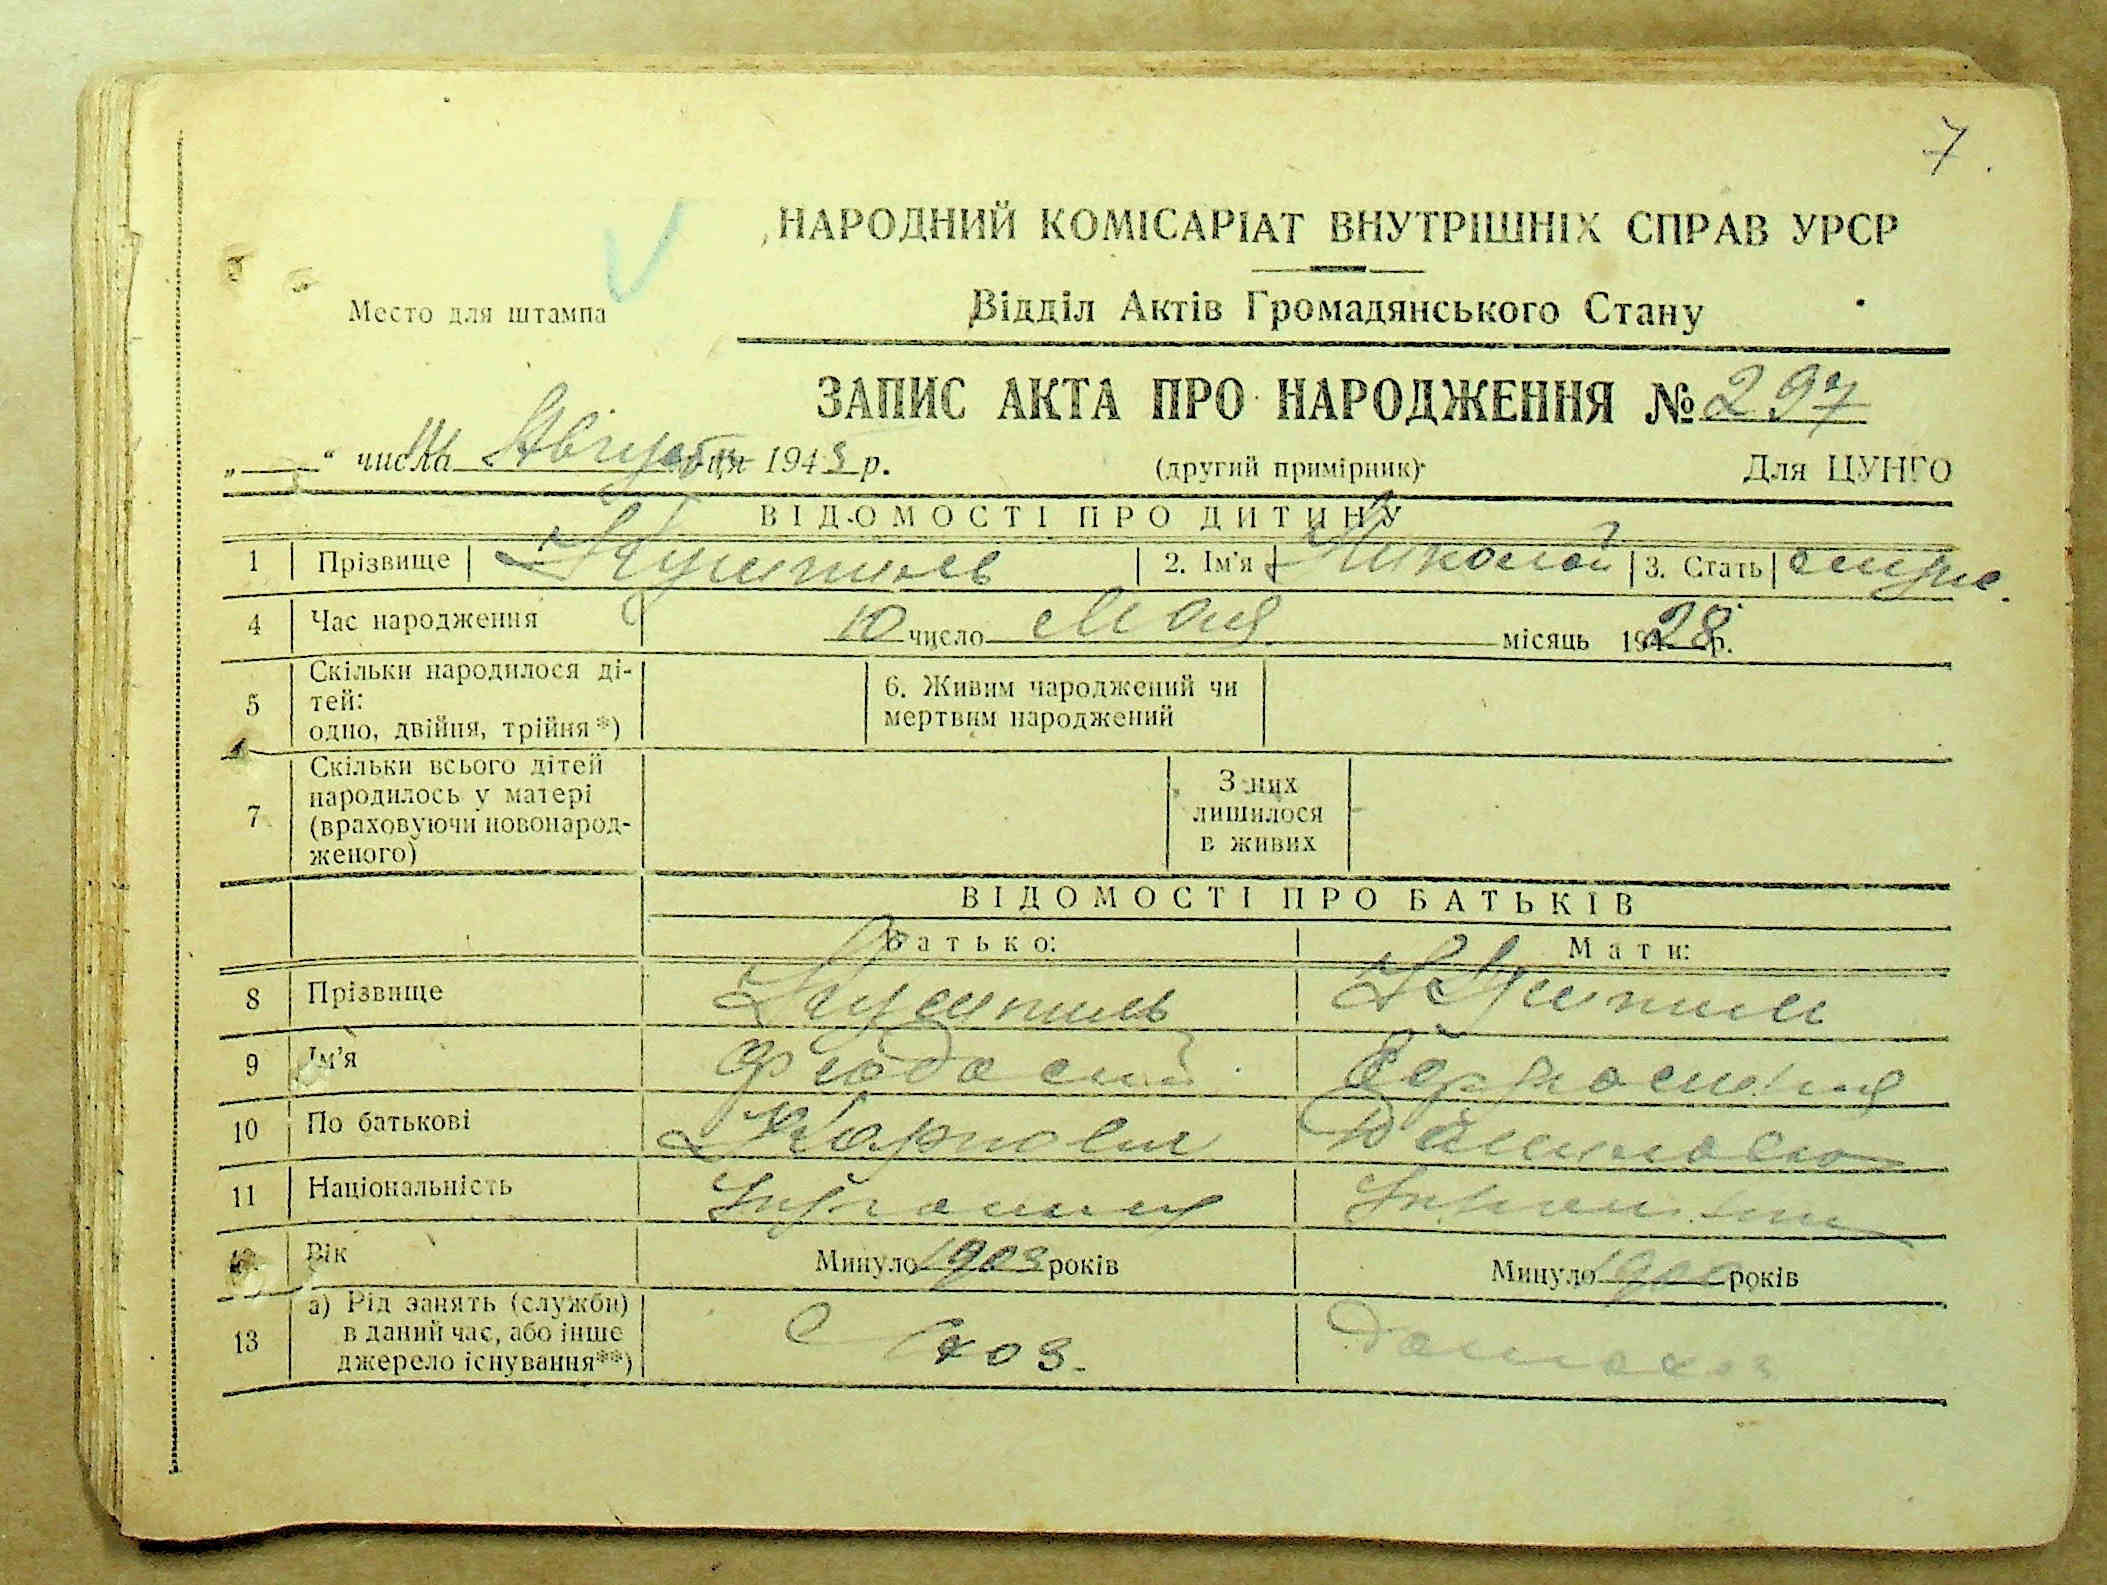 7.
НАРОДНИЙ КОМІСАРІАТ ВНУТРІШНІХ СПРАВ УРСР
Место для штампа
Відділ Актів Громадянського Стану
ЗАПИС АКТА ПРО НАРОДЖЕННЯ № 297
„ “ числа Августа ця 1943 р. (другий примірник) Для ЦУНГО
ВІДОМОСТІ ПРО ДИТИНУ
1 Прізвище 2. Ім'я Николай 3. Стать
4 Час народження 10 число Мая місяць 1928 р.
5 Скільки народилося ді-
тей:
одно, двійня, трійня*)
6. Живим народжений чи
мертвим народжений
7 Скільки всього дітей
народилось у матері
(враховуючи новонарод-
женого)
З них
лишилося
в живих
ВІДОМОСТІ ПРО БАТЬКІВ
Батько: Мати:
8 Прізвище
9 Ім'я Феодосий
10 По батькові Карпович Даниловна
11 Національність
12 Вік Минуло 1903 років Минуло 1900 років
13 а) Рід занять (служби)
в даний час, або інше
джерело існування**)
с/хоз. домохоз